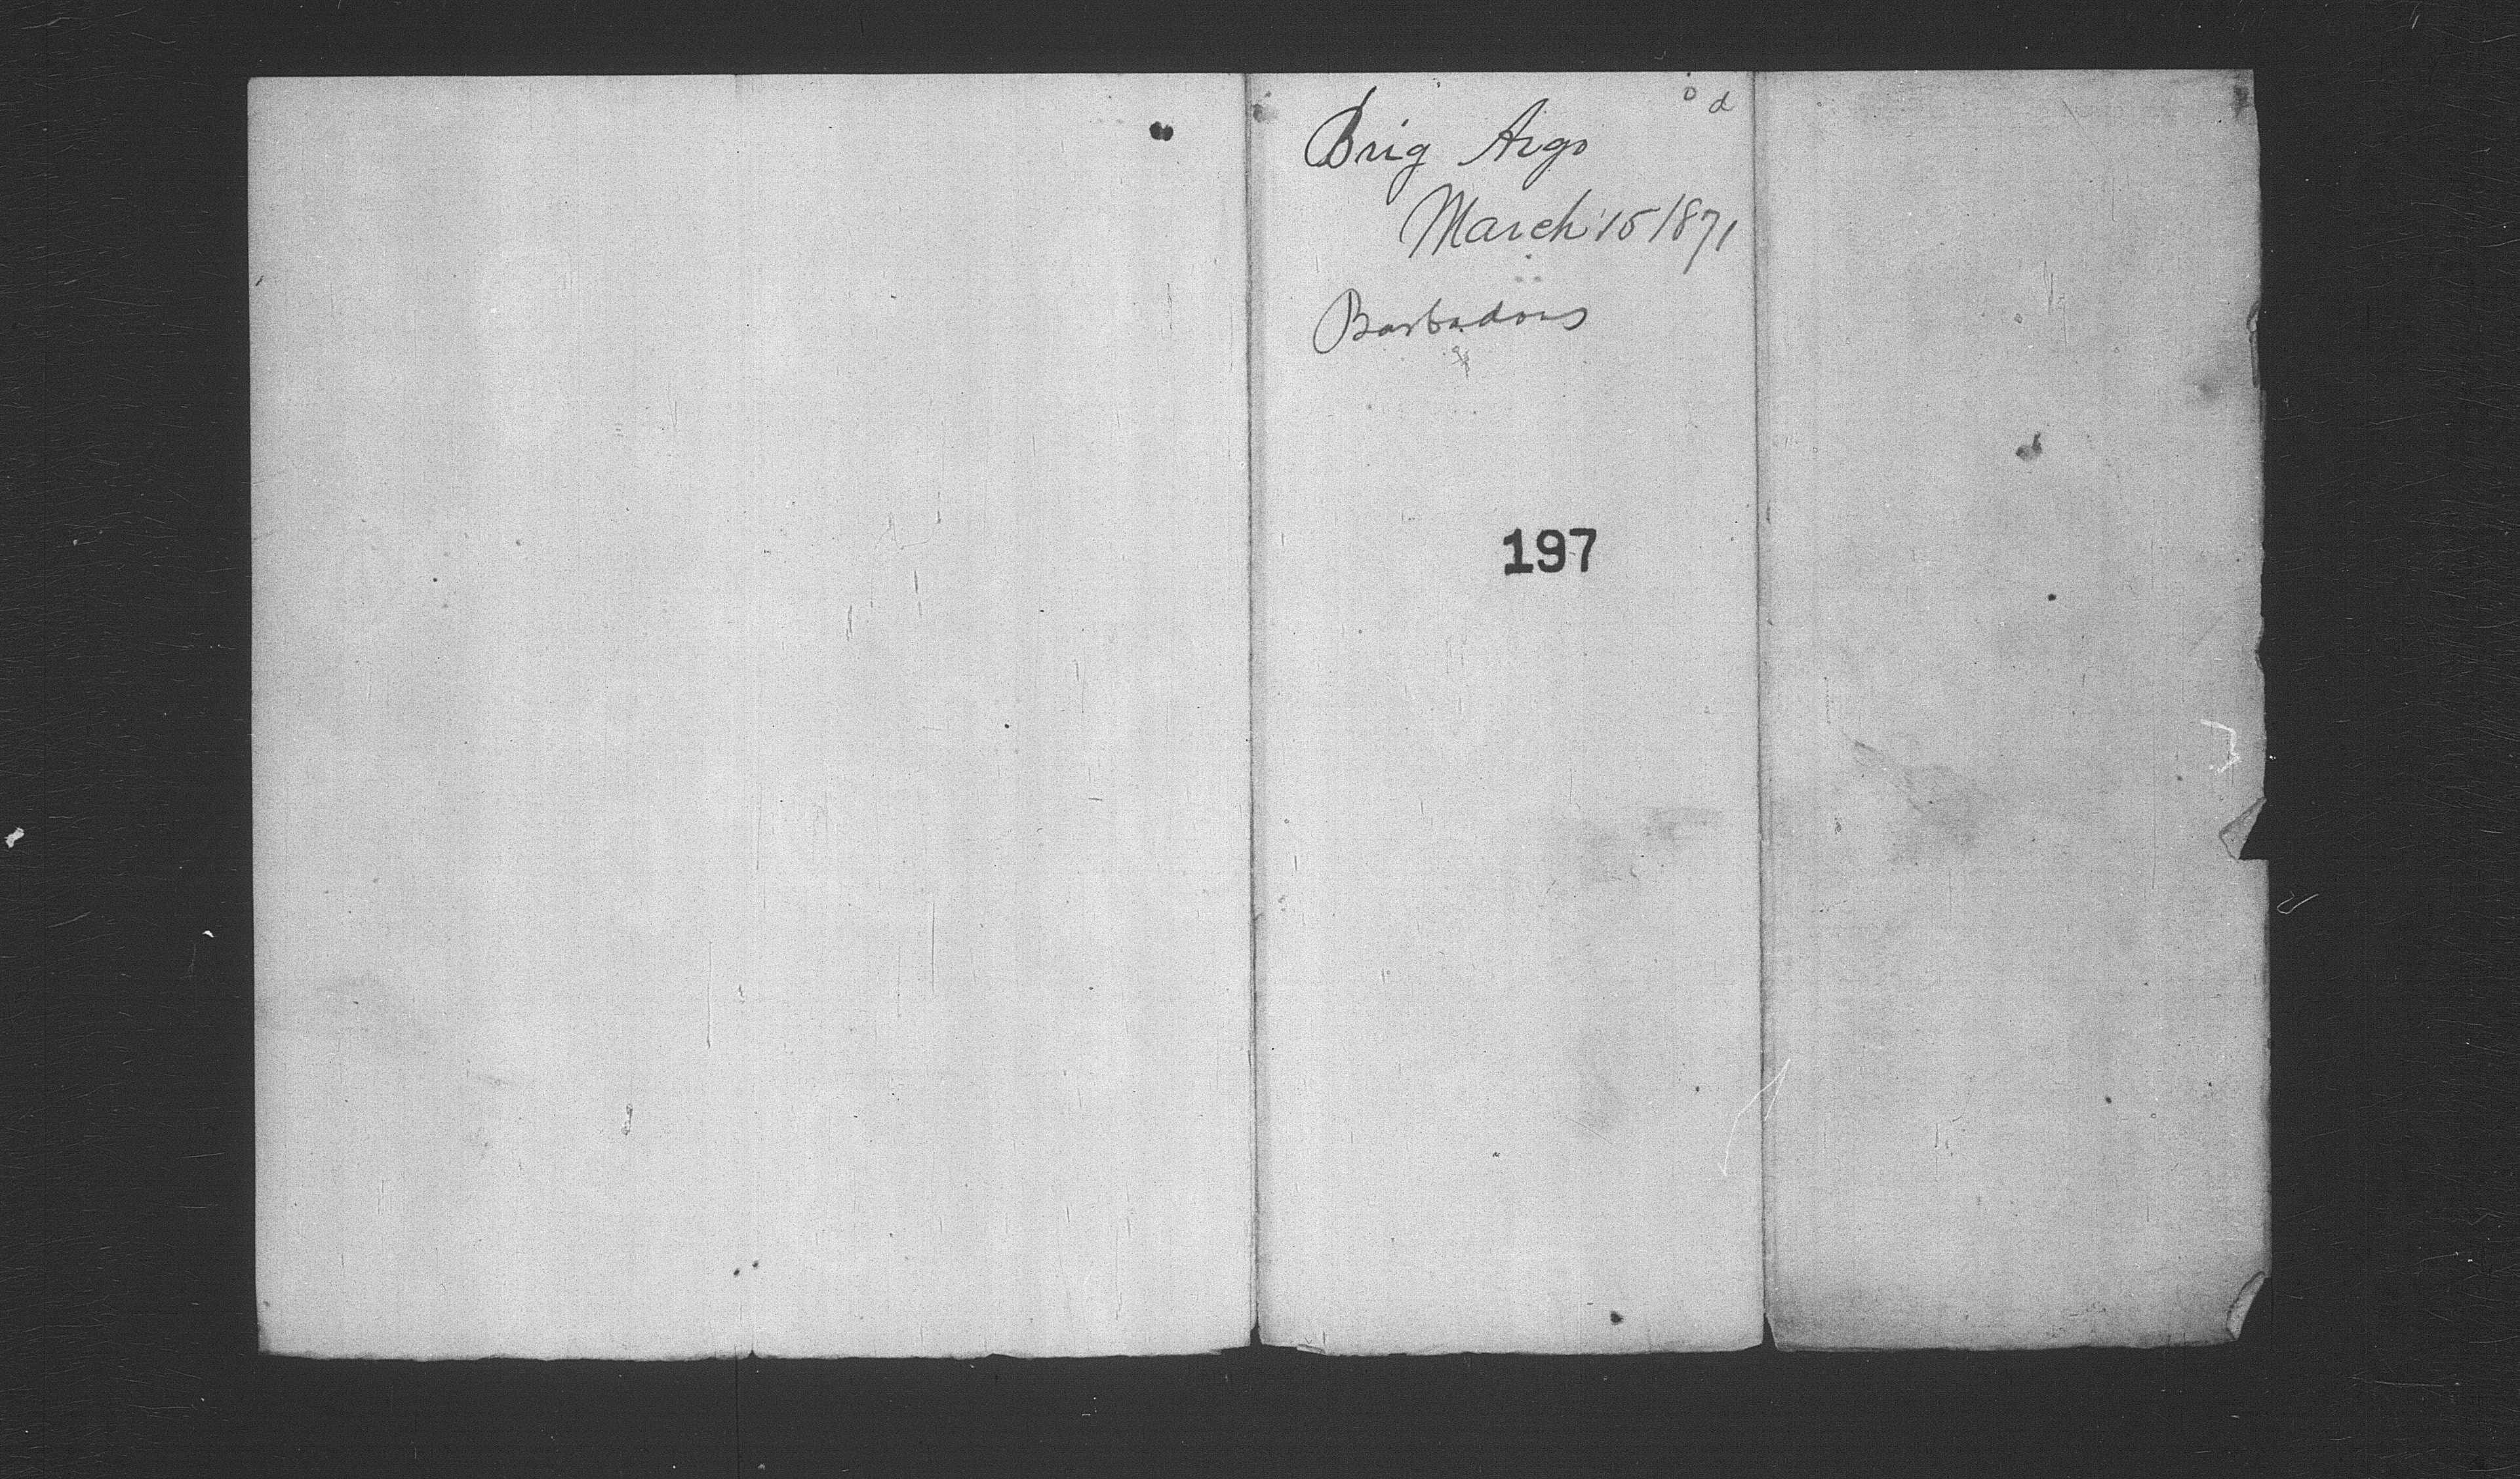 Brig Argo
March 15 1871
Barbadoes
197